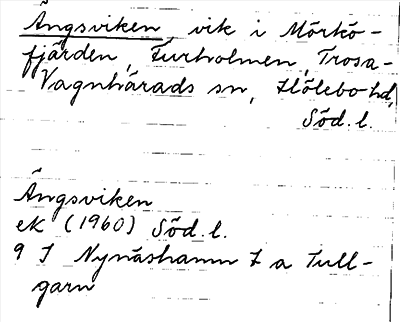 Ängsviken, vik i Mörkö-
fjärden, Furholmen, Trosa-
Vagnhärads sn, Hölebo hd,
Söd. l.
Ängsviken
ek (1960) Söd. l.
9 I Nynäshamn 7 a Tull-
garn